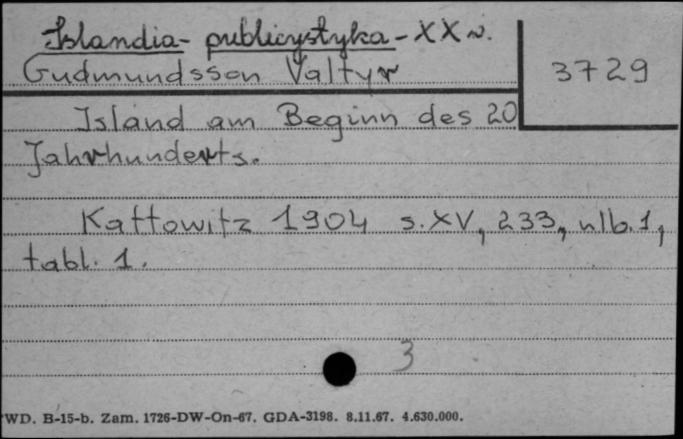 Islandia - publicystyka - XX w.
Gudmundsson Valtyr
3729
Island am Beginn des 20
Jahrhunderts.
Kattowitz 1904 s. XV, 233, nlb. 1,
tabl. 1.
3
WD. B-15-b. Zam. 1726-DW-On-67. GDA-3198. 8.11.67. 4.630.000.